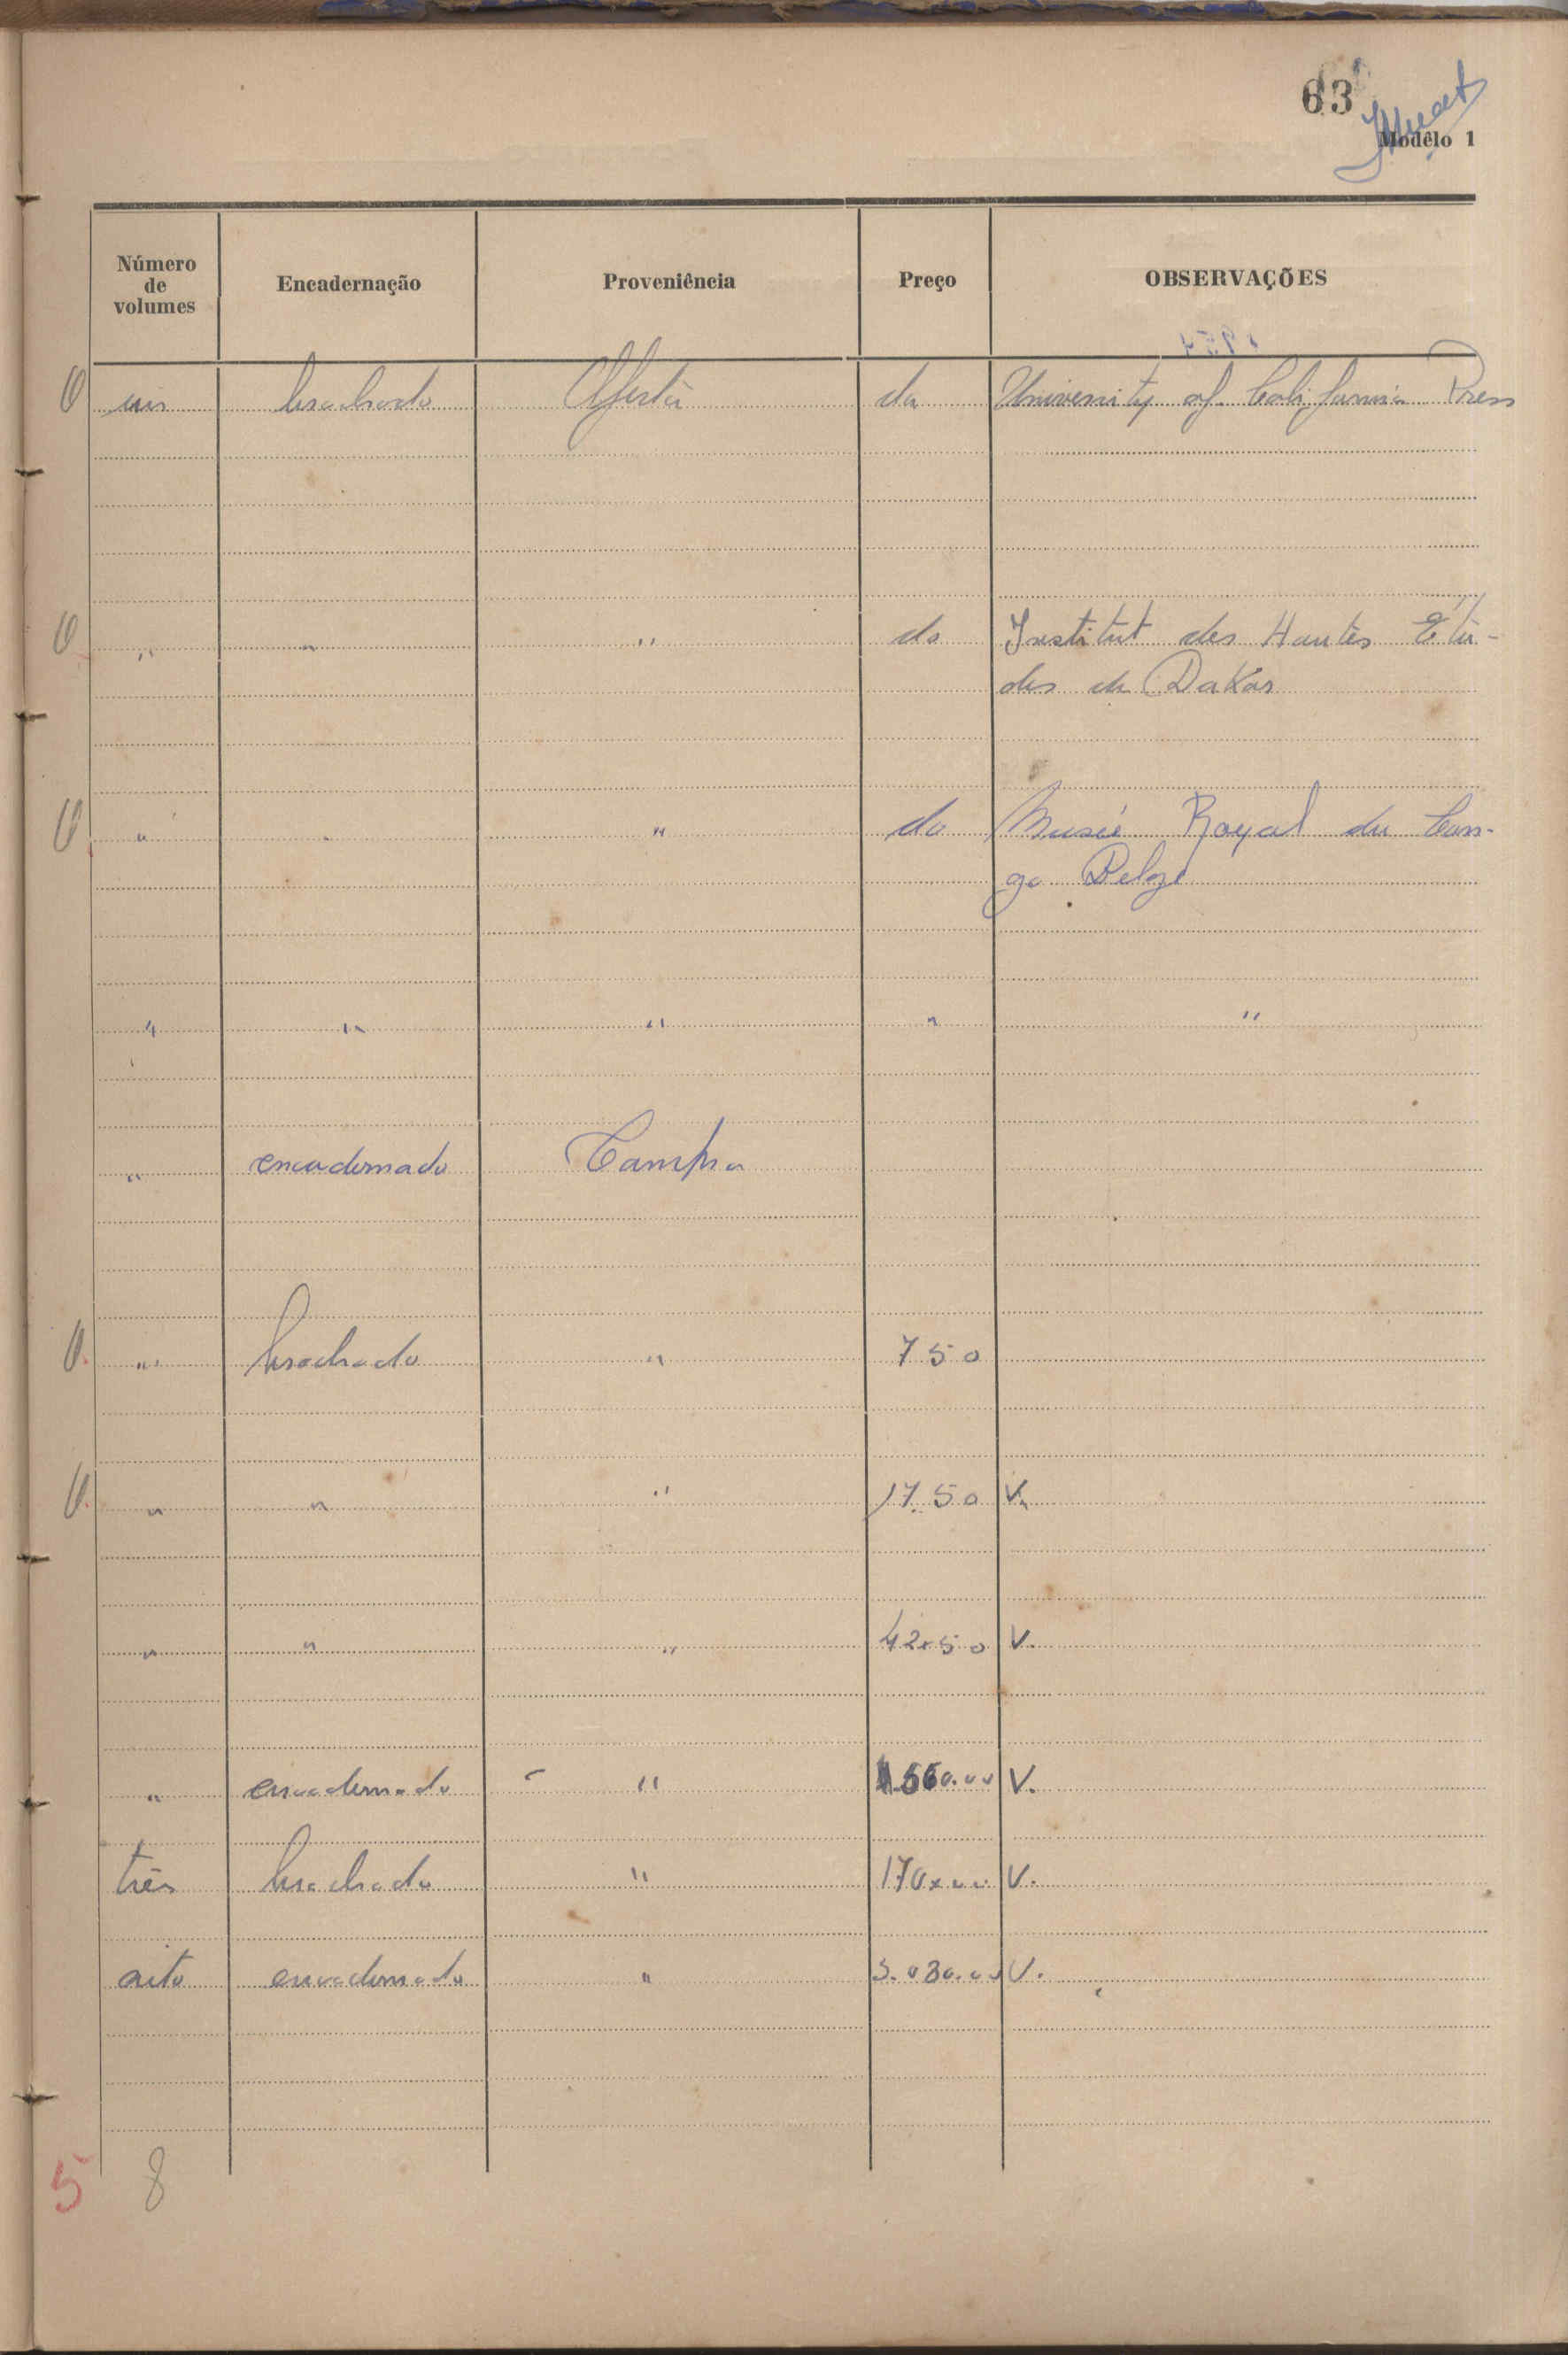 63
Modêlo 1
Número de volumes Encadernação Proveniência Preço OBSERVAÇÕES
um brochado Oferta da University of California Press
" " " do Institut des Hautes Étu-
des de Dakar
" " " do Musée Royal du Con-
go Belge
" " " " "
" encadernado Compra
" brochado " 750
" " " 17.50 V.
" " " 42x50 V.
" encadernado " V.
três brochado " 170x00 V.
oito encadernado " 3.030.00 V.
5 8